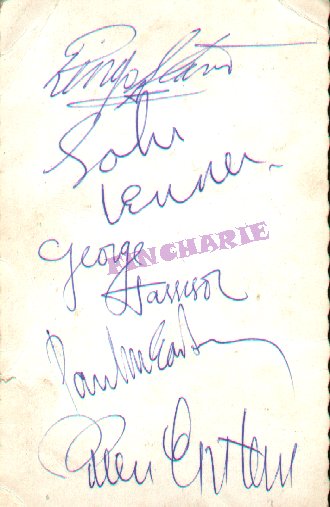 Ringo Starr
John
Lennon
George
FINCHARIE
Harrison
Paul McCartney
Epstein